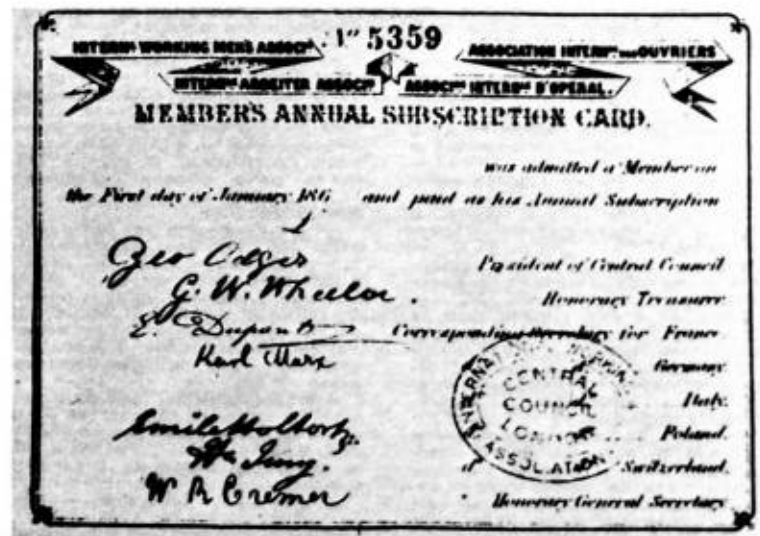 Nº 5359
INTERNL WORKING MENS ASSOCN
ASSOCIATION INTERNLE DES OUVRIERS
INTERNLE ARBEITER ASSOCN
ASSOCNE INTERNLE D'OPERAI.
MEMBER'S ANNUAL SUBSCRIPTION CARD.
was admitted a Member on
the First day of January 186 and paid as his Annual Subscription
Geo Odger President of Central Council
G. W. Wheeler. Honorary Treasurer
E. Dupont Corresponding Secretary for France
Karl Marx Germany
Italy.
Emile Holtorp Poland.
H. Jung. Switzerland.
W R Cremer Honorary General Secretary
INTERNATIONAL WORKING
CENTRAL
COUNCIL
LONDON
ASSOCIATION